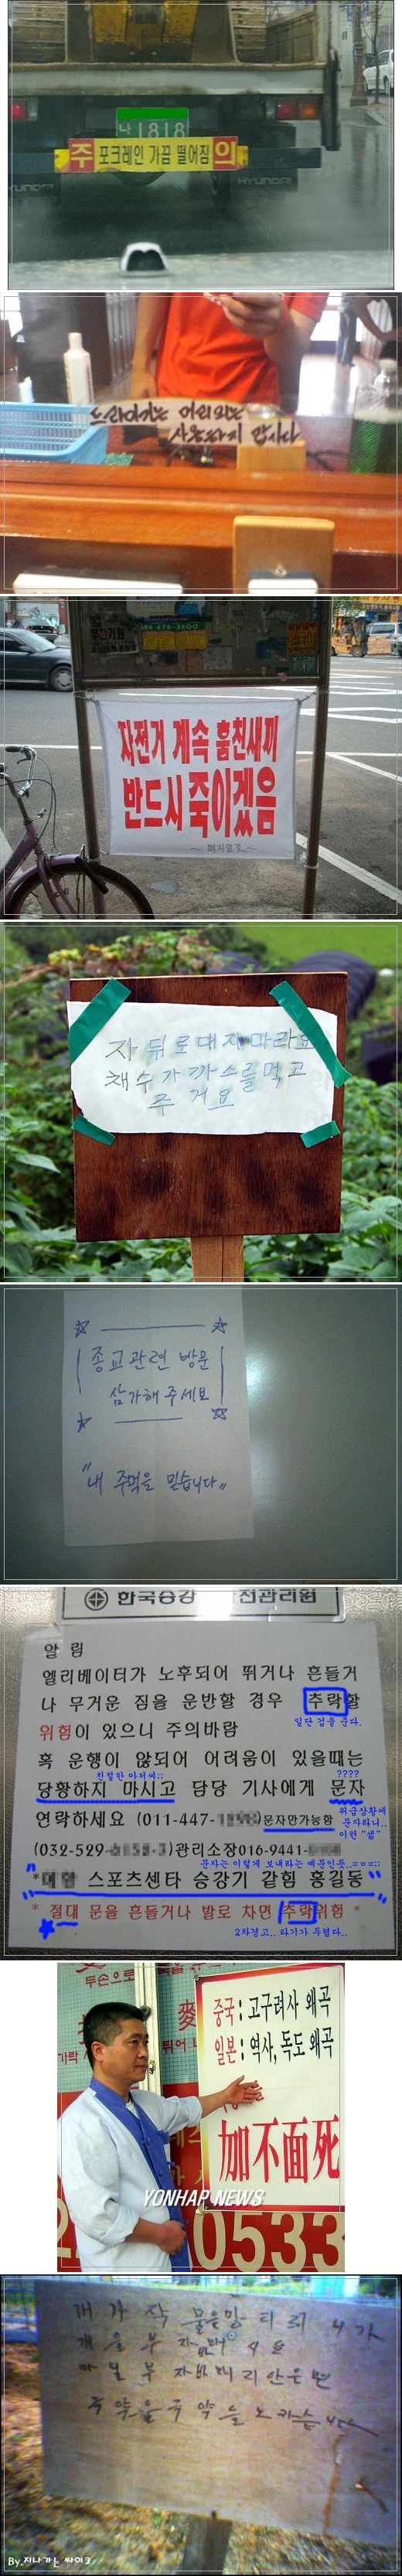 나 1818
주 포크레인 가끔 떨어짐 의
HYUNDAI
드라이기는 머리외에는
사용하지 맙시다
675-3500
자전거 계속 훔친새끼
반드시 죽이겠음
차 뒤로 대지마라요
채수가 까스를 먹고
주거요
종교관련 방문
삼가해 주세요
"내 주먹을 믿습니다"
한국승강 전관리원
알 림
엘리베이터가 노후되어 뛰거나 흔들거
나 무거운 짐을 운반할 경우 추락할
일단 겁을 준다.
위험이 있으니 주의바람
혹 운행이 않되어 어려움이 있을때는
친절한 아저씨;; ????
당황하지 마시고 담당 기사에게 문자
연락하세요 (011-447- )문자만가능함
위급상황에
문자라니..
이런 "쎔"
(032-529- )관리소장016-9441-
문자는 이렇게 보내라는 예문인듯..=ㅁ=;;
"* 스포츠센타 승강기 갇힘 홍길동"
* 절대 문을 흔들거나 발로 차면 추락위험 *
2차경고.. 타기가 두렵다..
두손으로
중국 : 고구려사 왜곡
일본 : 역사, 독도 왜곡
加不面死
YONHAP NEWS
0533
개 가 작 물을망 티리 니 가
개 을 부 자바매 사 요
마 일 부 자바 매 지 안 으 면
주 약 을
By.지나가는 싸이코